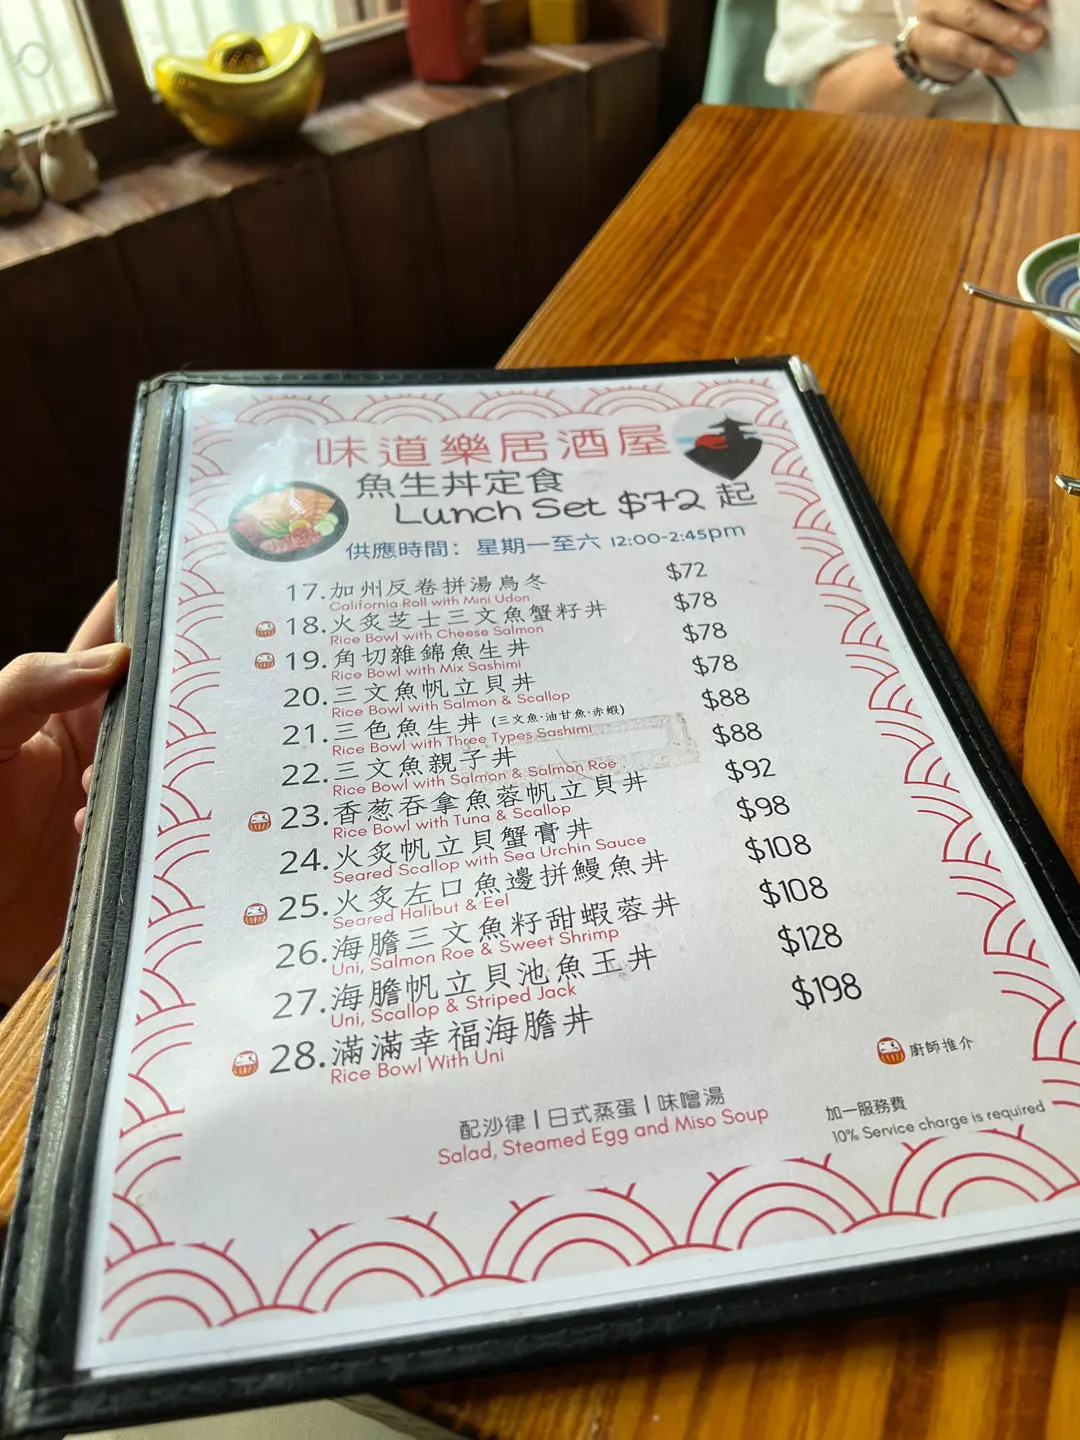 味道樂居酒屋
魚生丼定食
Lunch Set $72 起
供應時間：星期一至六 12:00-2:45pm
17. 加州反卷拼湯烏冬 $72
California Roll with Mini Udon
18. 火炙芝士三文魚蟹籽丼 $78
Rice Bowl with Cheese Salmon
19. 角切雜錦魚生丼 $78
Rice Bowl with Mix Sashimi
20. 三文魚帆立貝丼 $78
Rice Bowl with Salmon & Scallop
21. 三色魚生丼 (三文魚·油甘魚·赤蝦) $88
Rice Bowl with Three Types Sashimi
22. 三文魚親子丼 $88
Rice Bowl with Salmon & Salmon Roe
23. 香葱吞拿魚蓉帆立貝丼 $92
Rice Bowl with Tuna & Scallop
24. 火炙帆立貝蟹膏丼 $98
Seared Scallop with Sea Urchin Sauce
25. 火炙左口魚邊拼鰻魚丼 $108
Seared Halibut & Eel
26. 海膽三文魚籽甜蝦蓉丼 $108
Uni, Salmon Roe & Sweet Shrimp
27. 海膽帆立貝池魚王丼 $128
Uni, Scallop & Striped Jack
28. 滿滿幸福海膽丼 $198
Rice Bowl With Uni
廚師推介
配沙律 | 日式蒸蛋 | 味噌湯
Salad, Steamed Egg and Miso Soup
加一服務費
10% Service charge is required